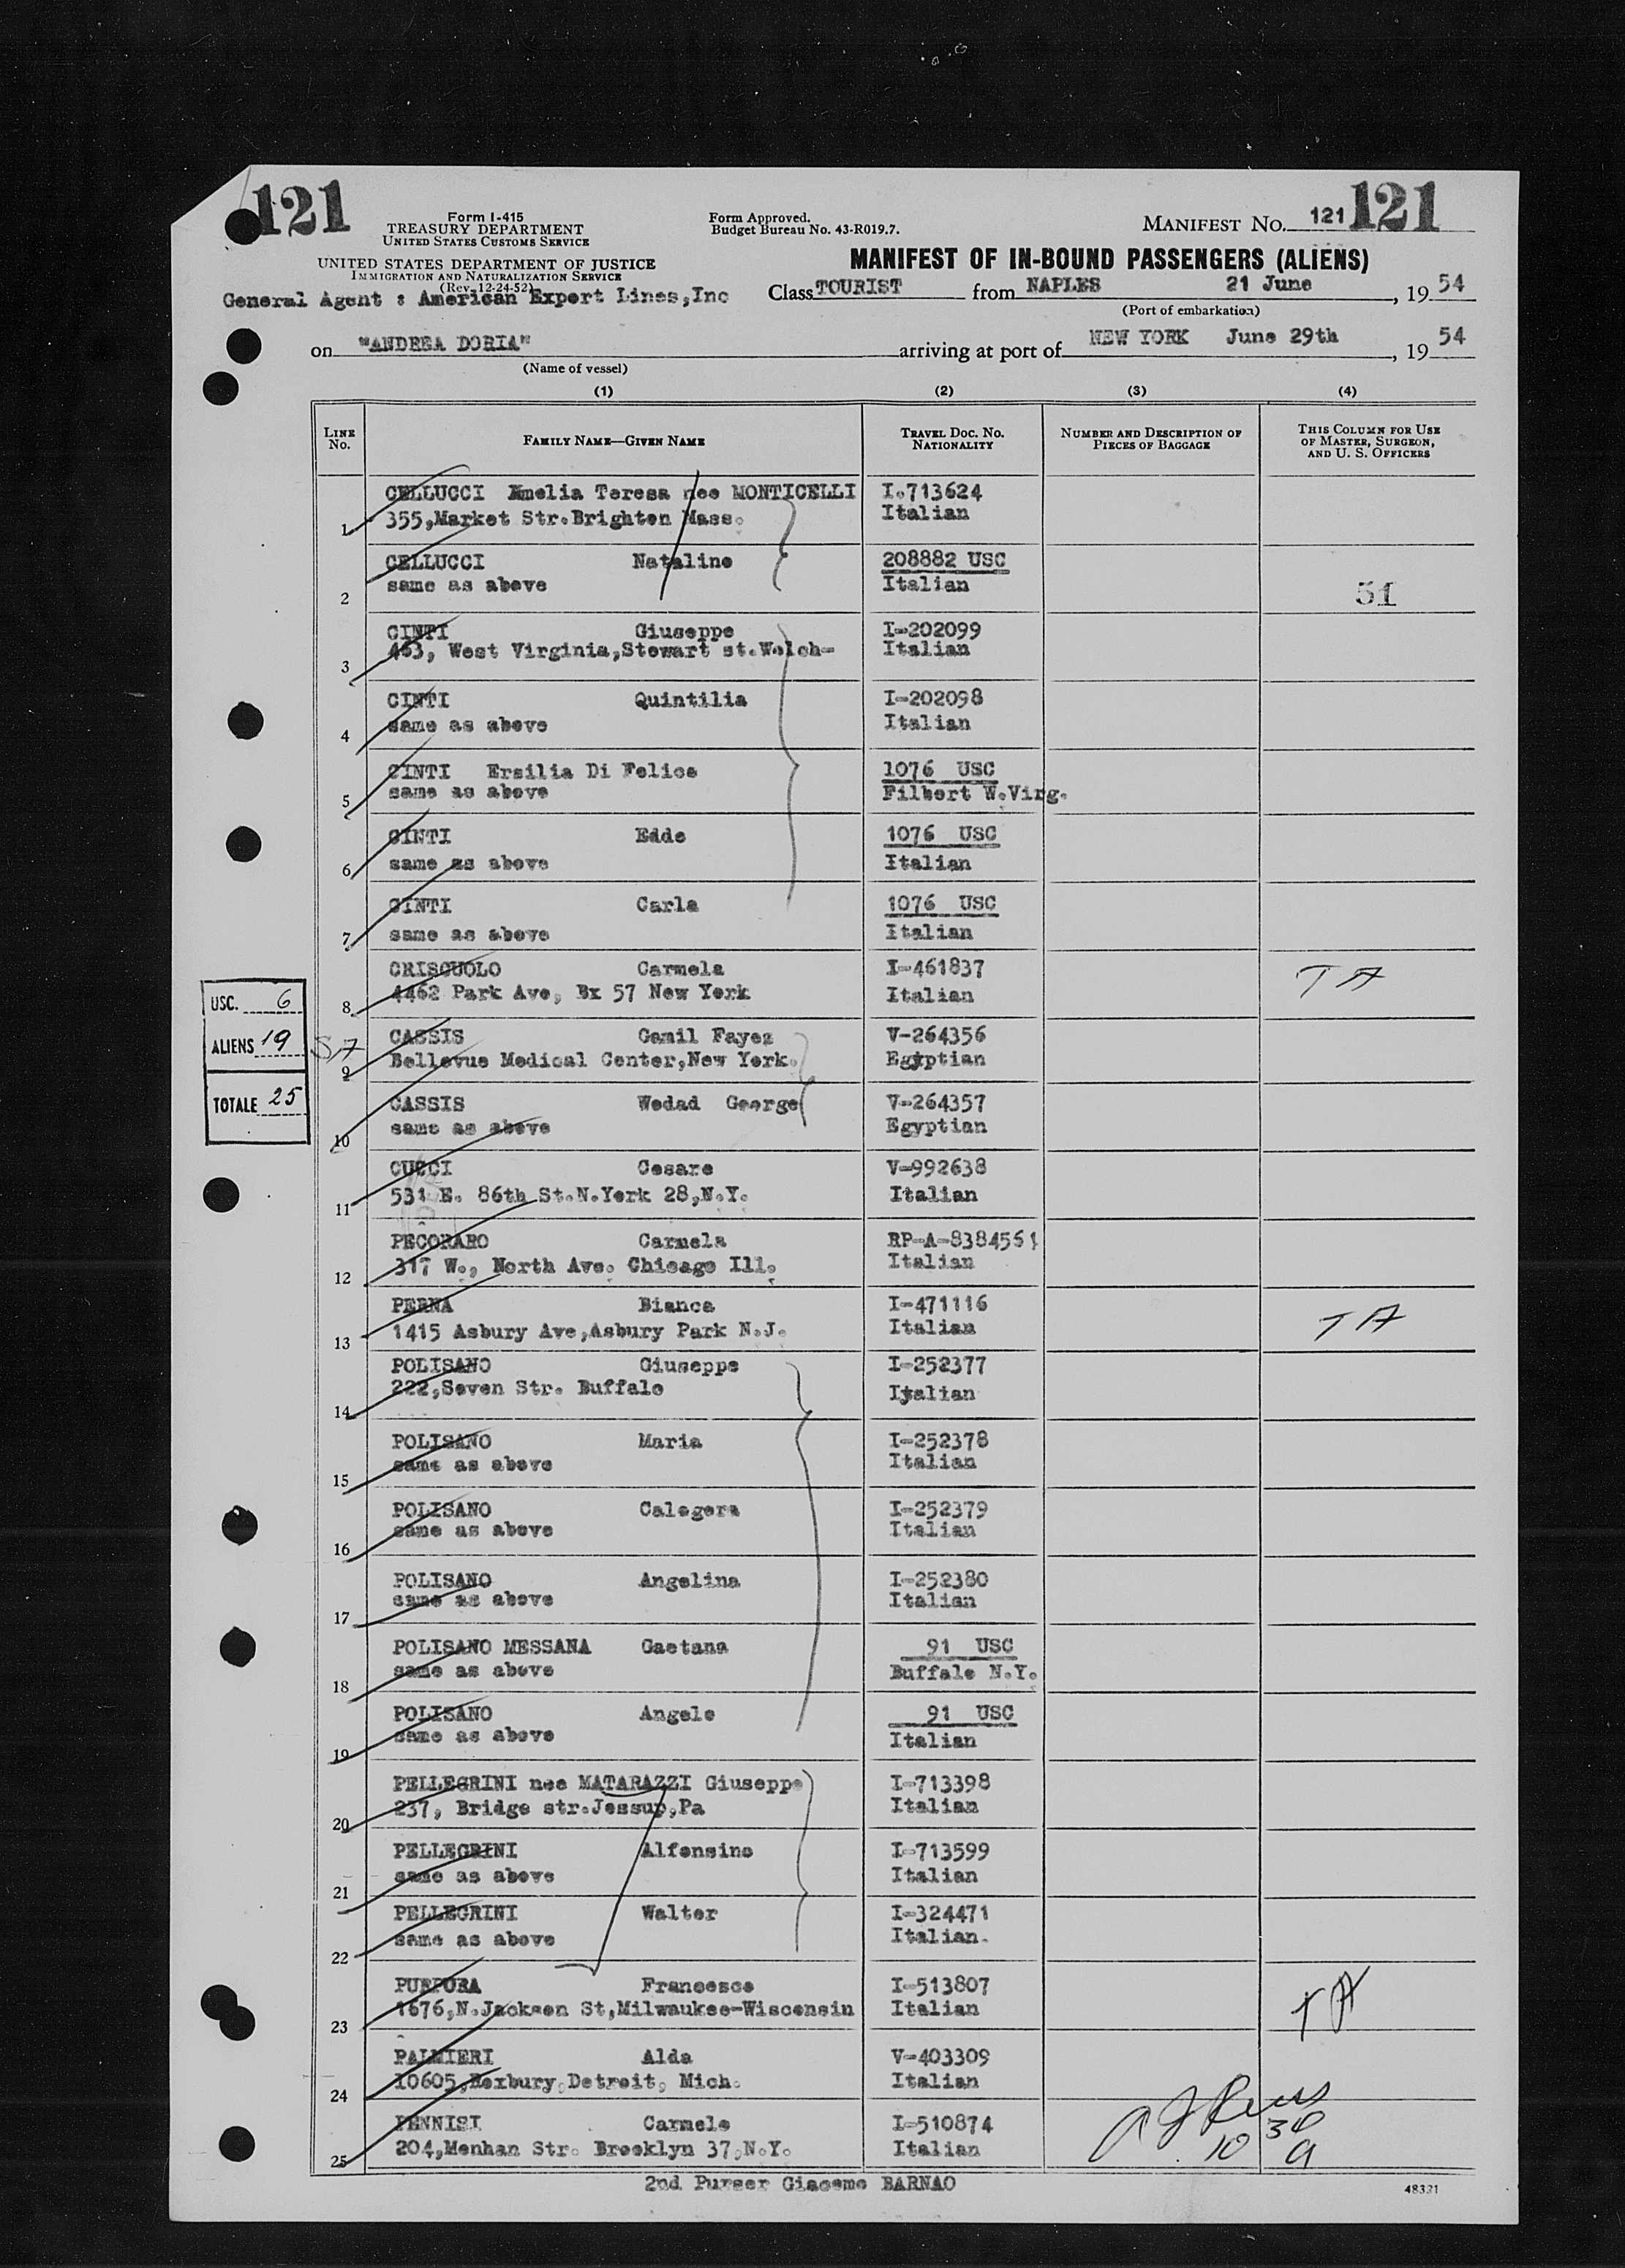 121
Form I-415
TREASURY DEPARTMENT
UNITED STATES CUSTOMS SERVICE
UNITED STATES DEPARTMENT OF JUSTICE
IMMIGRATION AND NATURALIZATION SERVICE
(Rev. 12-24-52)
General Agent : American Export Lines,Inc
Form Approved.
Budget Bureau No. 43-R019.7.
MANIFEST No. 121 121
MANIFEST OF IN-BOUND PASSENGERS (ALIENS)
Class TOURIST from NAPLES 21 June, 19 54
(Port of embarkation)
on "ANDREA DORIA" arriving at port of NEW YORK June 29th, 19 54
(Name of vessel)
(1) (2) (3) (4)
LINE No. FAMILY NAME—GIVEN NAME TRAVEL DOC. NO. NATIONALITY NUMBER AND DESCRIPTION OF PIECES OF BAGGAGE THIS COLUMN FOR USE OF MASTER, SURGEON, AND U. S. OFFICERS
CELLUCCI Amelia Teresa nee MONTICELLI I.713624
1 355,Market Str.Brighton Mass. Italian
CELLUCCI Natalino 208882 USC
2 same as above Italian 51
CINTI Giuseppe I-202099
3 463, West Virginia,Stewart st.Welch- Italian
CINTI Quintilia I-202098
4 same as above Italian
CINTI Ersilia Di Felice 1076 USC
5 same as above Filbert W.Virg.
CINTI Edde 1076 USC
6 same as above Italian
CINTI Carla 1076 USC
7 same as above Italian
CRISCUOLO Carmela I-461837 TA
8 4462 Park Ave, Bx 57 New York Italian
USC. 6
ALIENS 19
TOTALE 25
CASSIS Gamil Fayez V-264356
9 Bellevue Medical Center,New York. Egyptian
CASSIS Wedad George V-264357
10 same as above Egyptian
CUCCI Cesare V-992638
11 531 E. 86th St.N.York 28,N.Y. Italian
PECORARO Carmela RP-A-8384561
12 317 W., North Ave. Chicago Ill. Italian
PERNA Bianca I-471116
13 1415 Asbury Ave,Asbury Park N.J. Italian TA
POLISANO Giuseppe I-252377
14 222,Seven Str. Buffalo Italian
POLISANO Maria I-252378
15 same as above Italian
POLISANO Calogera I-252379
16 same as above Italian
POLISANO Angelina I-252380
17 same as above Italian
POLISANO MESSANA Gaetana 91 USC
18 same as above Buffalo N.Y.
POLISANO Angelo 91 USC
19 same as above Italian
PELLEGRINI nee MATARAZZI Giuseppe I-713398
20 237, Bridge str.Jessup,Pa Italian
PELLEGRINI Alfonsino I-713599
21 same as above Italian
PELLEGRINI Walter I-324471
22 same as above Italian.
PURPURA Francesco I-513807
23 1676,N.Jackson St,Milwaukee-Wisconsin Italian TA
PALMIERI Alda V-403309
24 10605,Roxbury,Detroit, Mich. Italian
PENNISI Carmelo I-510874
25 204,Menhan Str. Brooklyn 37,N.Y. Italian
2nd Purser Giacomo BARNAO
48321